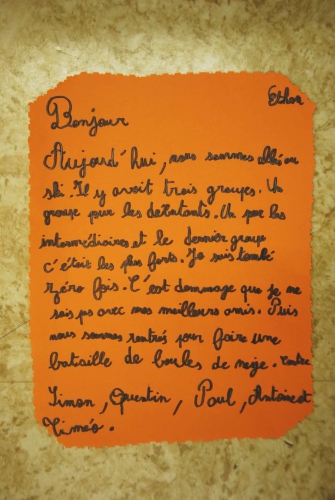 Ethan
Bonjour
Aujourd'hui, nous sommes allé au
ski. Il y avoit trois groupes. Un
groupe pour les débutants. Un pour les
intermédiaires et le dernier groupe
c'était les plus forts. Je suis tombé
zéro fois. C'est dommage que je ne
sois pas avec mes meilleurs amis. Puis
nous sommes rentrés pour faire une
bataille de boules de neige. Contre
Simon, Quentin, Paul, Antoine et
Timéo.